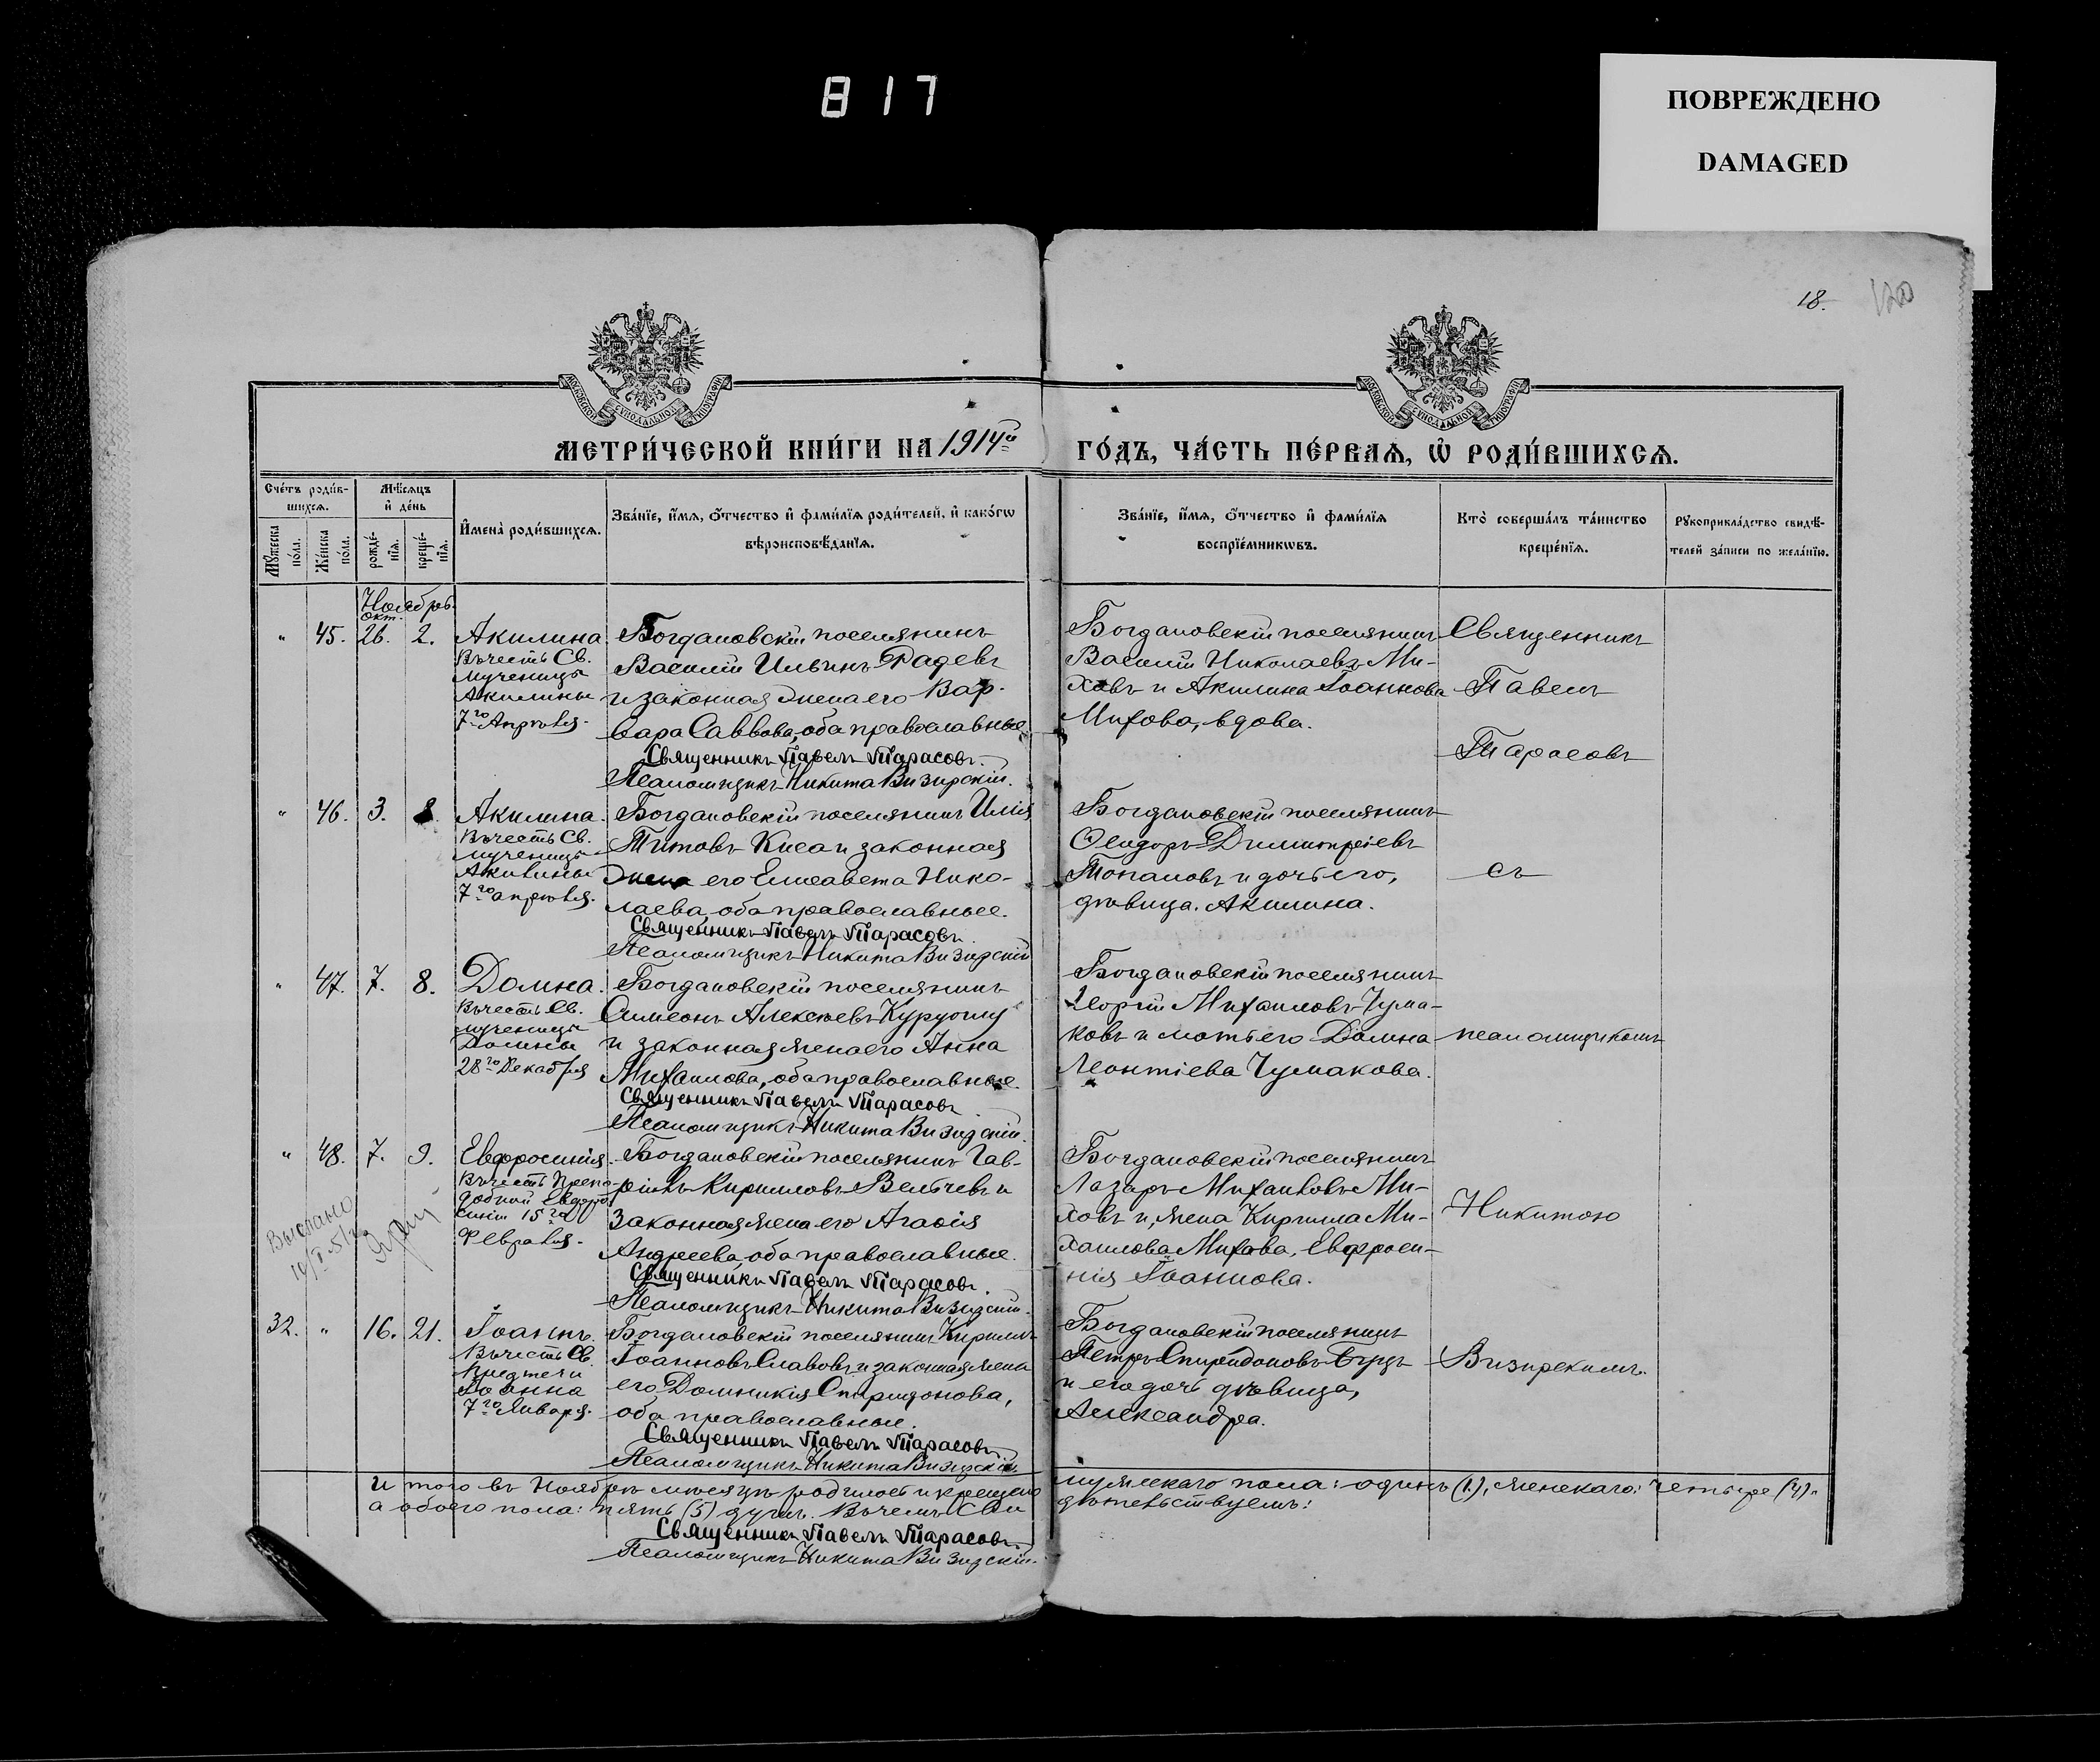 817
ПОВРЕЖДЕНО
DAMAGED
18.
120
МОСКОВСКОЙ СѴНОДАЛЬНОЙ ТИПОГРАФІИ
МОСКОВСКОЙ СѴНОДАЛЬНОЙ ТИПОГРАФІИ
МЕТРИ́ЧЕСКОЙ КНИ́ГИ НА 1914й ГО́ДЪ, ЧА́СТЬ ПЕ́РВАѦ, Ѡ҆ РОДИ́ВШИХСѦ.
Сче́тъ роди́в-
шихсѧ.
Мꙋ́жеска по́ла.
Же́нска по́ла.
Мѣ́сѧцъ
и҆ де́нь
рожде́-
нїѧ.
креще́-
нїѧ.
И҆мена̀ роди́вшихсѧ.
Зва́нїе, и҆́мѧ, ѻ҆́тчество и҆ фами́лїѧ роди́телей, и҆ како́гѡ
вѣроисповѣ́данїѧ.
Зва́нїе, и҆́мѧ, ѻ҆́тчество и҆ фами́лїѧ
воспрїе́мникѡвъ.
Кто̀ соверша́лъ та́инство
креще́нїѧ.
Рꙋкоприкла́дство свидѣ́-
телей за́писи по жела́нїю.
Ноябрь
Окт.
" 45. 26. 2. Акилина
Въ честь Св.
мученицы
Акилины
7го Апрѣля.
Богдановскій поселянинъ
Василій Ильинъ Радевъ
и законная жена его Вар-
вара Саввова, оба православные.
Священникъ Павелъ Тарасовъ.
Псаломщикъ Никита Визирскій.
Богдановскій поселянинъ
Василій Николаевъ Ми-
ховъ и Акилина Іоаннова
Михова, вдова.
Священникъ
Павелъ
Тарасовъ
" 46. 3. 8. Акилина.
Въ честь Св.
мученицы
Акилины
7го апрѣля.
Богдановскій поселянинъ Илія
Титовъ Киса и законная
жена его Елисавета Нико-
лаева, оба православные.
Священникъ Павелъ Тарасовъ.
Псаломщикъ Никита Визирскій
Богдановскій поселянинъ
Ѳеодоръ Димитріевъ
Топаловъ и дочь его,
дѣвица Акилина.
съ
" 47. 7. 8. Домна.
Въ честь Св.
мученицы
Домны
28го Декабря
Богдановскій поселянинъ
Симеонъ Алексѣевъ Куруоглу
и законная жена его Анна
Михаилова, оба православные.
Священникъ Павелъ Тарасовъ
Псаломщикъ Никита Визирскій.
Богдановскій поселянинъ
Георгій Михаиловъ Чума-
ковъ и мать его Домна
Леонтіева Чумакова.
псаломщикомъ
" 48. 7. 9. Евфросинія.
Въ честь Препо-
добной Евфро-
синіи 15го
Февраля.
Выслано
Богдановскій поселянинъ Гав-
ріилъ Кирилловъ Велчевъ и
законная жена его Агаѳія
Андреева, оба православные.
Священникъ Павелъ Тарасовъ.
Псаломщикъ Никита Визирскій.
Богдановскій поселянинъ
Лазарь Михаиловъ Ми-
ховъ и, жена Кирилла Ми-
хаилова Михова, Евфроси-
нія Іоаннова.
Никитою
32. " 16. 21. Іоаннъ.
Въ честь Св.
Предтечи
Іоанна
7го Января.
Богдановскій поселянинъ Кириллъ
Іоанновъ Славовъ и законная жена
его Домникія Спиридонова,
оба православные.
Священникъ Павелъ Тарасовъ.
Псаломщикъ Никита Визирскій.
Богдановскій поселянинъ
Петръ Спиридоновъ
и его дочь дѣвица,
Александра.
Визирскимъ.
Итого въ Ноябрѣ мѣсяцѣ родилось и крещено мужескаго пола: одинъ (1), женскаго: четыре (4),
а обоего пола: пять (5) душъ. Въ чемъ сви дѣтельствуемъ:
Священникъ Павелъ Тарасовъ.
Псаломщикъ Никита Визирскій.